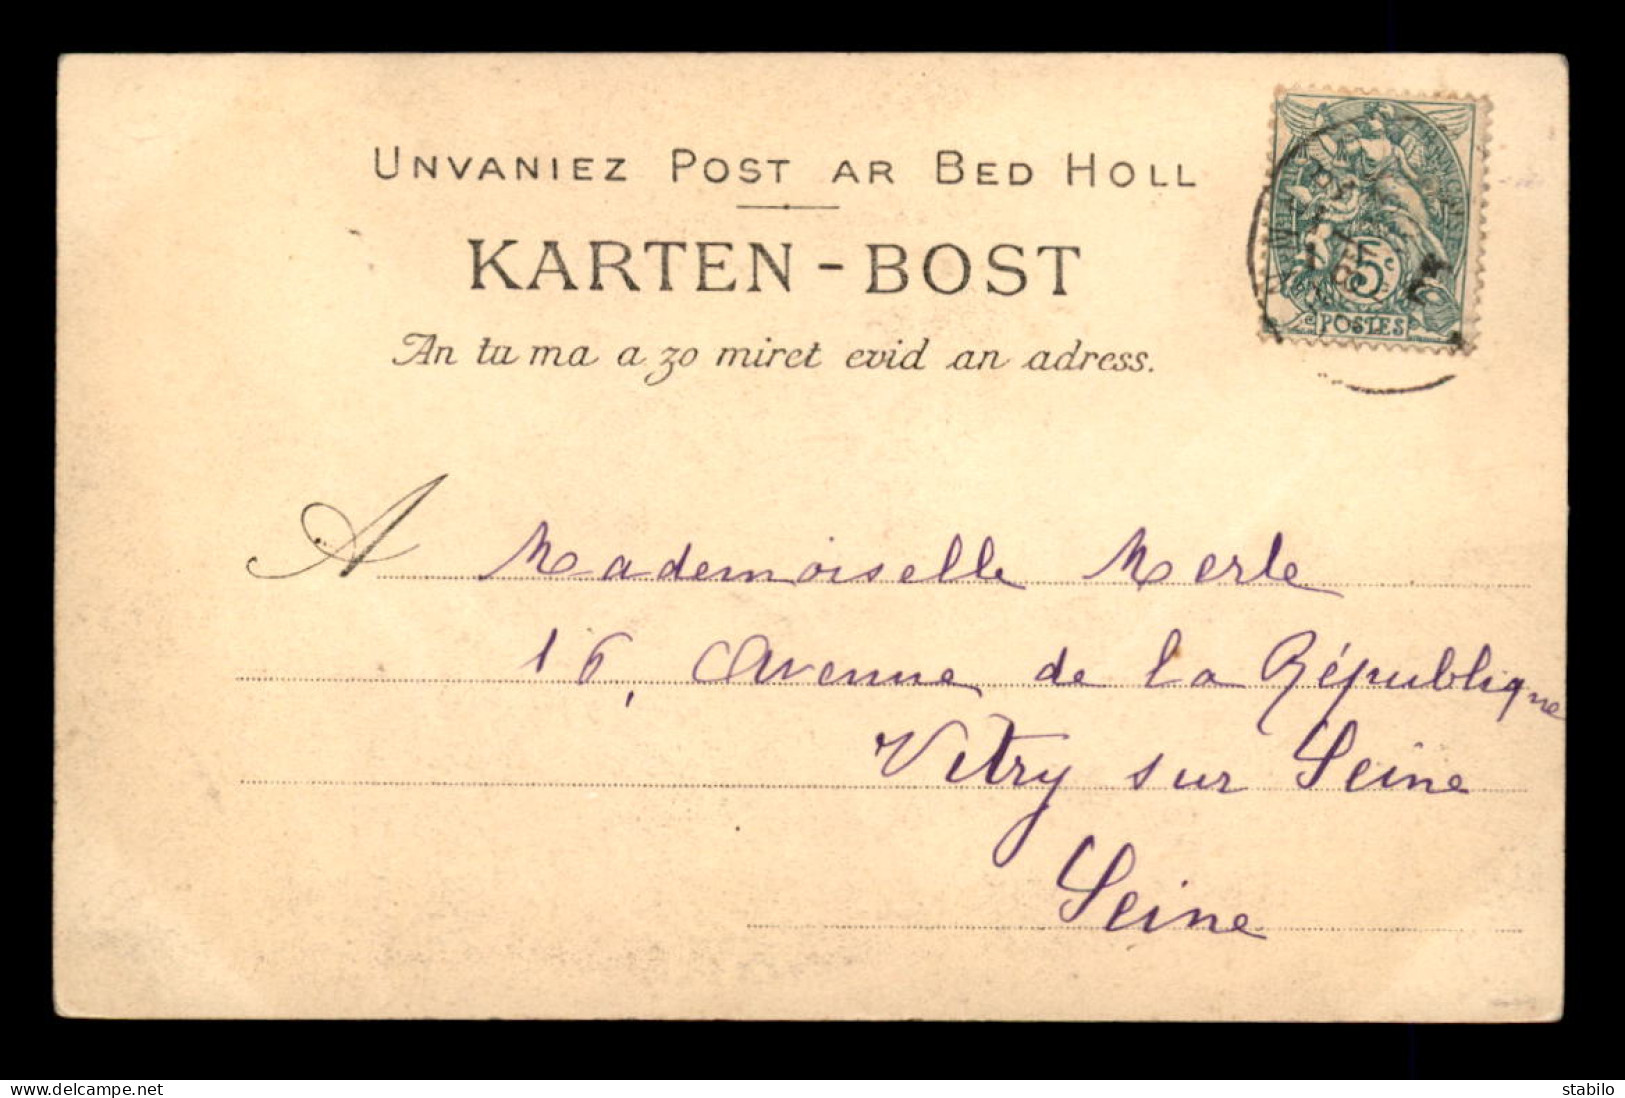 UNVANIEZ POST AR BED HOLL
KARTEN-BOST
An tu ma a zo miret evid an adress.
5c
POSTES
A Mademoiselle Merle
16, Avenue de la République
Vitry sur Seine
Seine
www.delcampe.net
stabilo